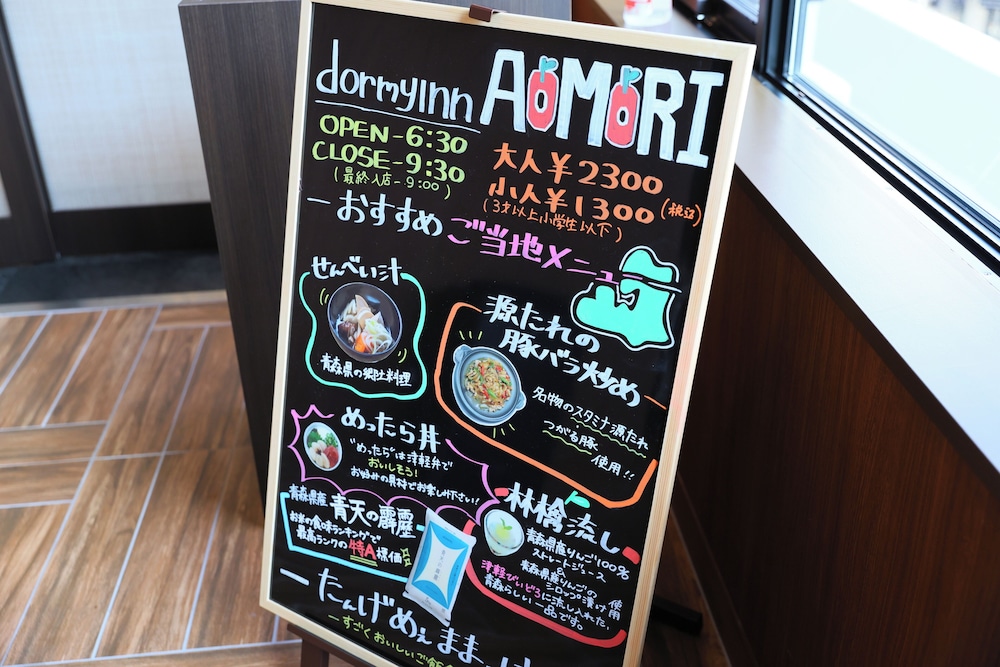 dormyInn AOMORI
OPEN-6:30
CLOSE-9:30
(最終入店-9:00)
大人¥2300
小人¥1300(税込)
(3才以上小学生以下)
-おすすめご当地メニュー
せんべい汁
青森県の郷土料理
源たれの
豚バラ炒め
名物のスタミナ源たれ
つがる豚、
使用!!
めったら丼
"めったら"は津軽弁で
おいしそう!
お好みの具材でお楽しみ下さい!
青森県産 青天の霹靂
お米の食味ランキングで
最高ランクの特A標価
青天の霹靂
林檎流し
青森県産りんご100%
ストレートジュース
&
青森県産りんごの
シロップ漬け使用
津軽びいどろに流し入れた、
青森らしい一品です。
-たんげめぇまま
-すごくおいしいご飯